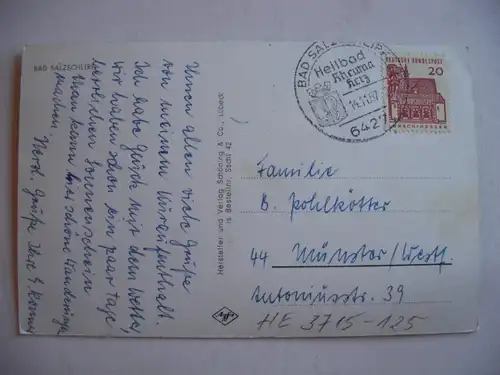 BAD SALZSCHLIRF
Ihnen allen viele Grüße
von meinem Kuraufenthalt.
Ich habe Glück mit dem Wetter,
wir haben schon ein paar Tage
herrlichen Sonnenschein
Man kann hier schöne Wanderungen
machen.
Herzl. Grüße Ihre
Hersteller und Verlag Schöning & Co.
Bestellnr.
BAD SALZSCHLIRF
Heilbad
Rheuma
Herz
6427
DEUTSCHE BUNDESPOST
20
Familie
B. Pohlkötter
44 Münster/Westf.
Antoniusstr. 39
HE 3715-125